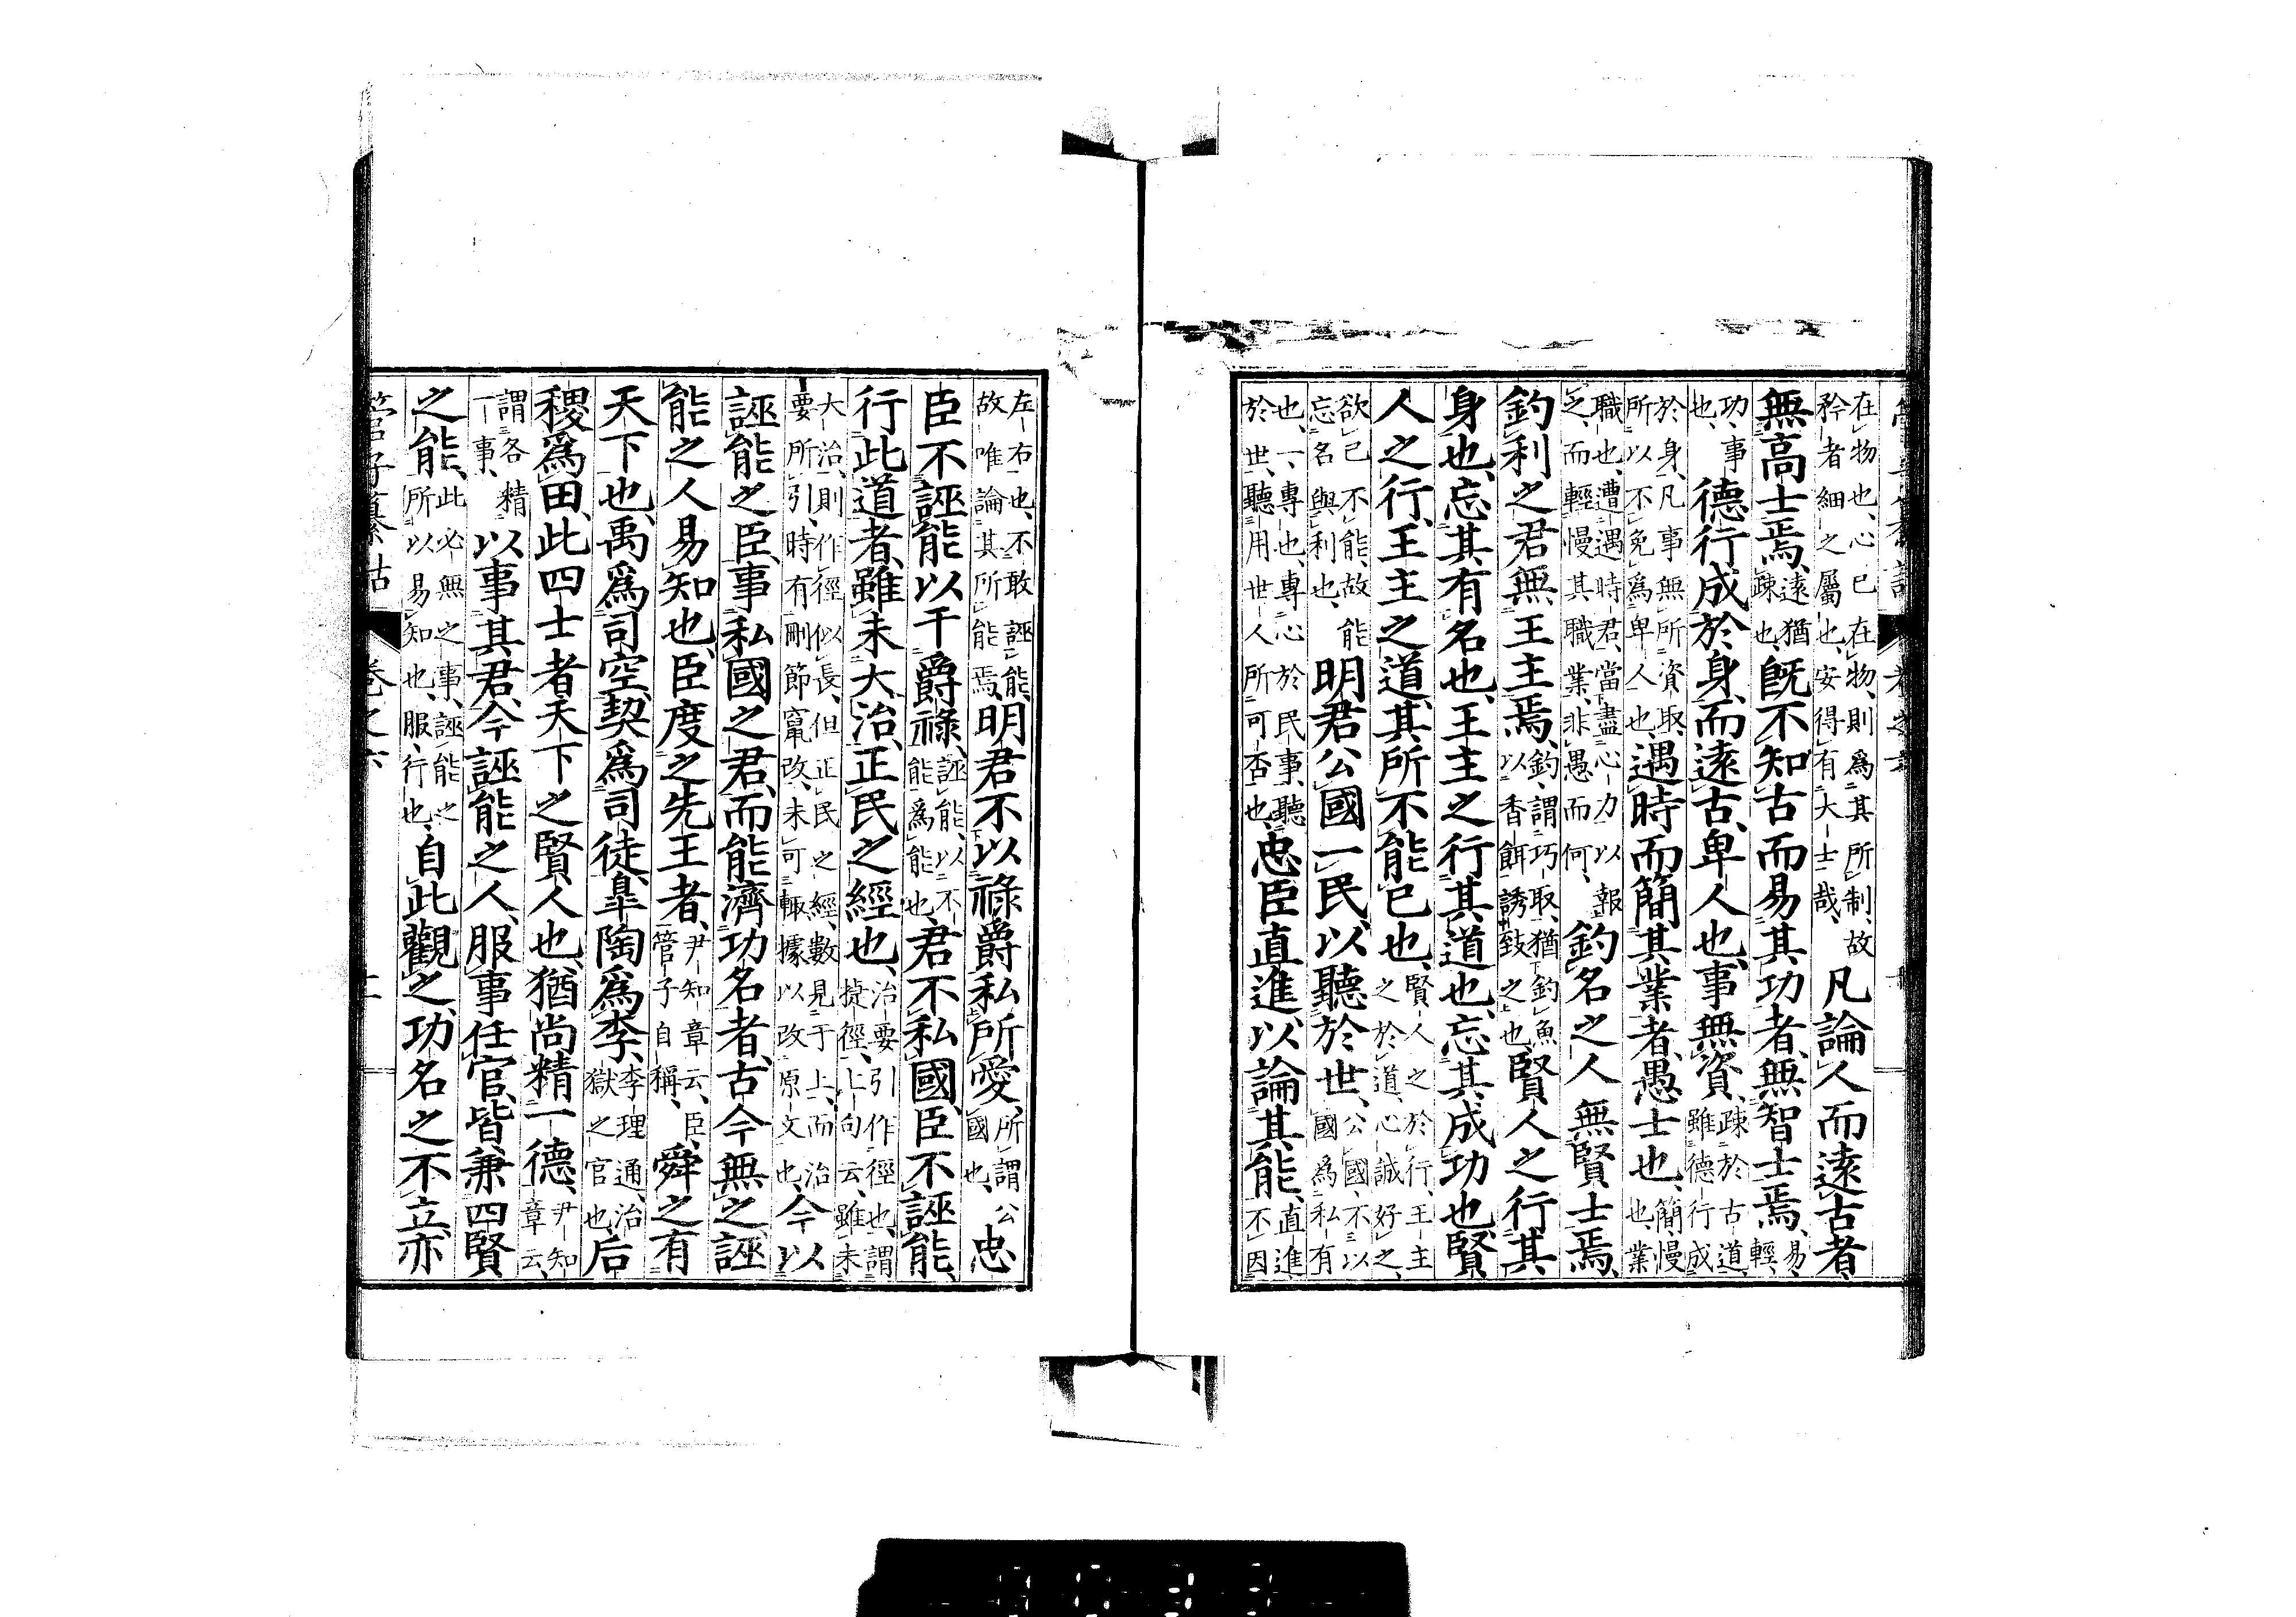 在物也、心已在物、則爲其所制、故矜者細之屬也、安得有大士哉、凡論人而遠古者、
無高士焉、遠猶疎也、既不知古而易其功者、無智士焉、易、輕、
功、事也、德行成於身、而遠古、卑人也、事無資、疎於古道、雖德行成
於身、凡事無所資取、所以不免爲卑人也、遇時而簡其業者、愚士也、簡、慢也、業
職也、遭遇時君、當盡心力以報之、而輕慢其職業、非愚而何、釣名之人無賢士焉、
釣利之君無王主焉、釣、謂巧取、猶釣魚以香餌誘致之也、賢人之行其
身也、忘其有名也、王主之行其道也、忘其成功也、賢
人之行、王主之道、其所不能已也、賢人之於行、王主之於道、心誠好之、
欲已不能、故能忘名與利也、明君公國一民、以聽於世、公國、不以國爲私有
也、一、專也、專心於民事、聽於世、聽用世人所可否也、忠臣直進、以論其能、直進、不因
左右也、不敢誣能、故唯論其所能焉、明君不以祿爵私所愛、所謂公國也、忠
臣不誣能以干爵祿、誣能、以不能爲能也、君不私國、臣不誣能、
行此道者、雖未大治、正民之經也、治要引作徑也、謂捷徑、上句云、雖未
大治、則作徑似長、但正民之經、數見于上、而治要所引、時有刪節竄改、未可輒據以改原文也、今以
誣能之臣、事私國之君、而能濟功名者、古今無之、誣
能之人易知也、臣度之先王者、尹知章云、臣、管子自稱、舜之有
天下也、禹爲司空、契爲司徒、皐陶爲李、李理通、治獄之官也、后
稷爲田、此四士者天下之賢人也、猶尚精一德、尹知章云、
謂各精一事、以事其君、今誣能之人、服事任官、皆兼四賢
之能、此必無之事、誣能之所以易知也、服、行也、自此觀之、功名之不立、亦
管子纂詁 卷之六